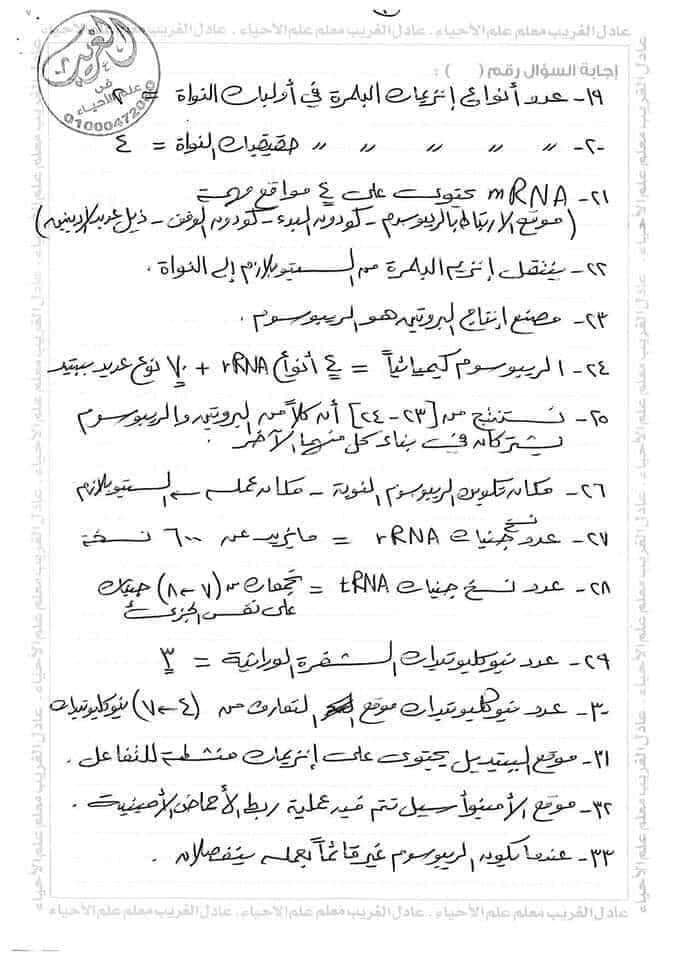 عادل الغريب معلم علم الأحياء . عادل الغريب معلم علم الأحياء . عادل الغريب معلم علم الأحياء
الغريب
في
علم الأحياء
إجابة السؤال رقم ( ) :
١٩- عدد أنواع إنزيمات البلمرة في أوليات النواة =
٢٠-〃 〃 〃 〃 〃 حقيقيات النواة = ٤
٢١- mRNA يحتوى على ٤ مواقع مهمة
(موقع الارتباط بالريبوسوم - كودون البدء - كودون الوقف - ذيل عديد الأدينين)
٢٢- ينتقل إنزيم البلمرة من السيتوبلازم إلى النواة .
٢٣- مصنع إنتاج البروتين هو الريبوسوم .
٢٤- الريبوسوم كيميائياً = ٤ أنواع rRNA + ٧٠ نوع عديد ببتيد
٢٥- نستنتج من [٢٣-٢٤] أن كلاً من البروتين والريبوسوم
يشتركان في بناء كل منهما الآخر .
٢٦- مكان تكوين الريبوسوم النوية - مكان عمله ← السيتوبلازم
٢٧- عدد نسخ جينات rRNA = ما يزيد عن ٦٠٠ نسخة
٢٨- عدد نسخ جينات tRNA = تجمعات من (٧ ← ٨) جينات
على نفس الجزئ
٢٩- عدد نيوكليوتيدات الشفرة الوراثية = ٣
٣٠- عدد نيوكليوتيدات موقع التعارف من (٤ ← ٧) نيوكليوتيدات
٣١- موقع الببتيديل يحتوى على إنزيمات منشطة للتفاعل .
٣٢- موقع الأمينو أسيل تتم فيه عملية ربط الأحماض الأمينية .
٣٣- عندما يكون الريبوسوم غير قائماً بعمله ينفصلان .
عادل الغريب معلم علم الأحياء . عادل الغريب معلم علم الأحياء . عادل الغريب معلم علم الأحياء